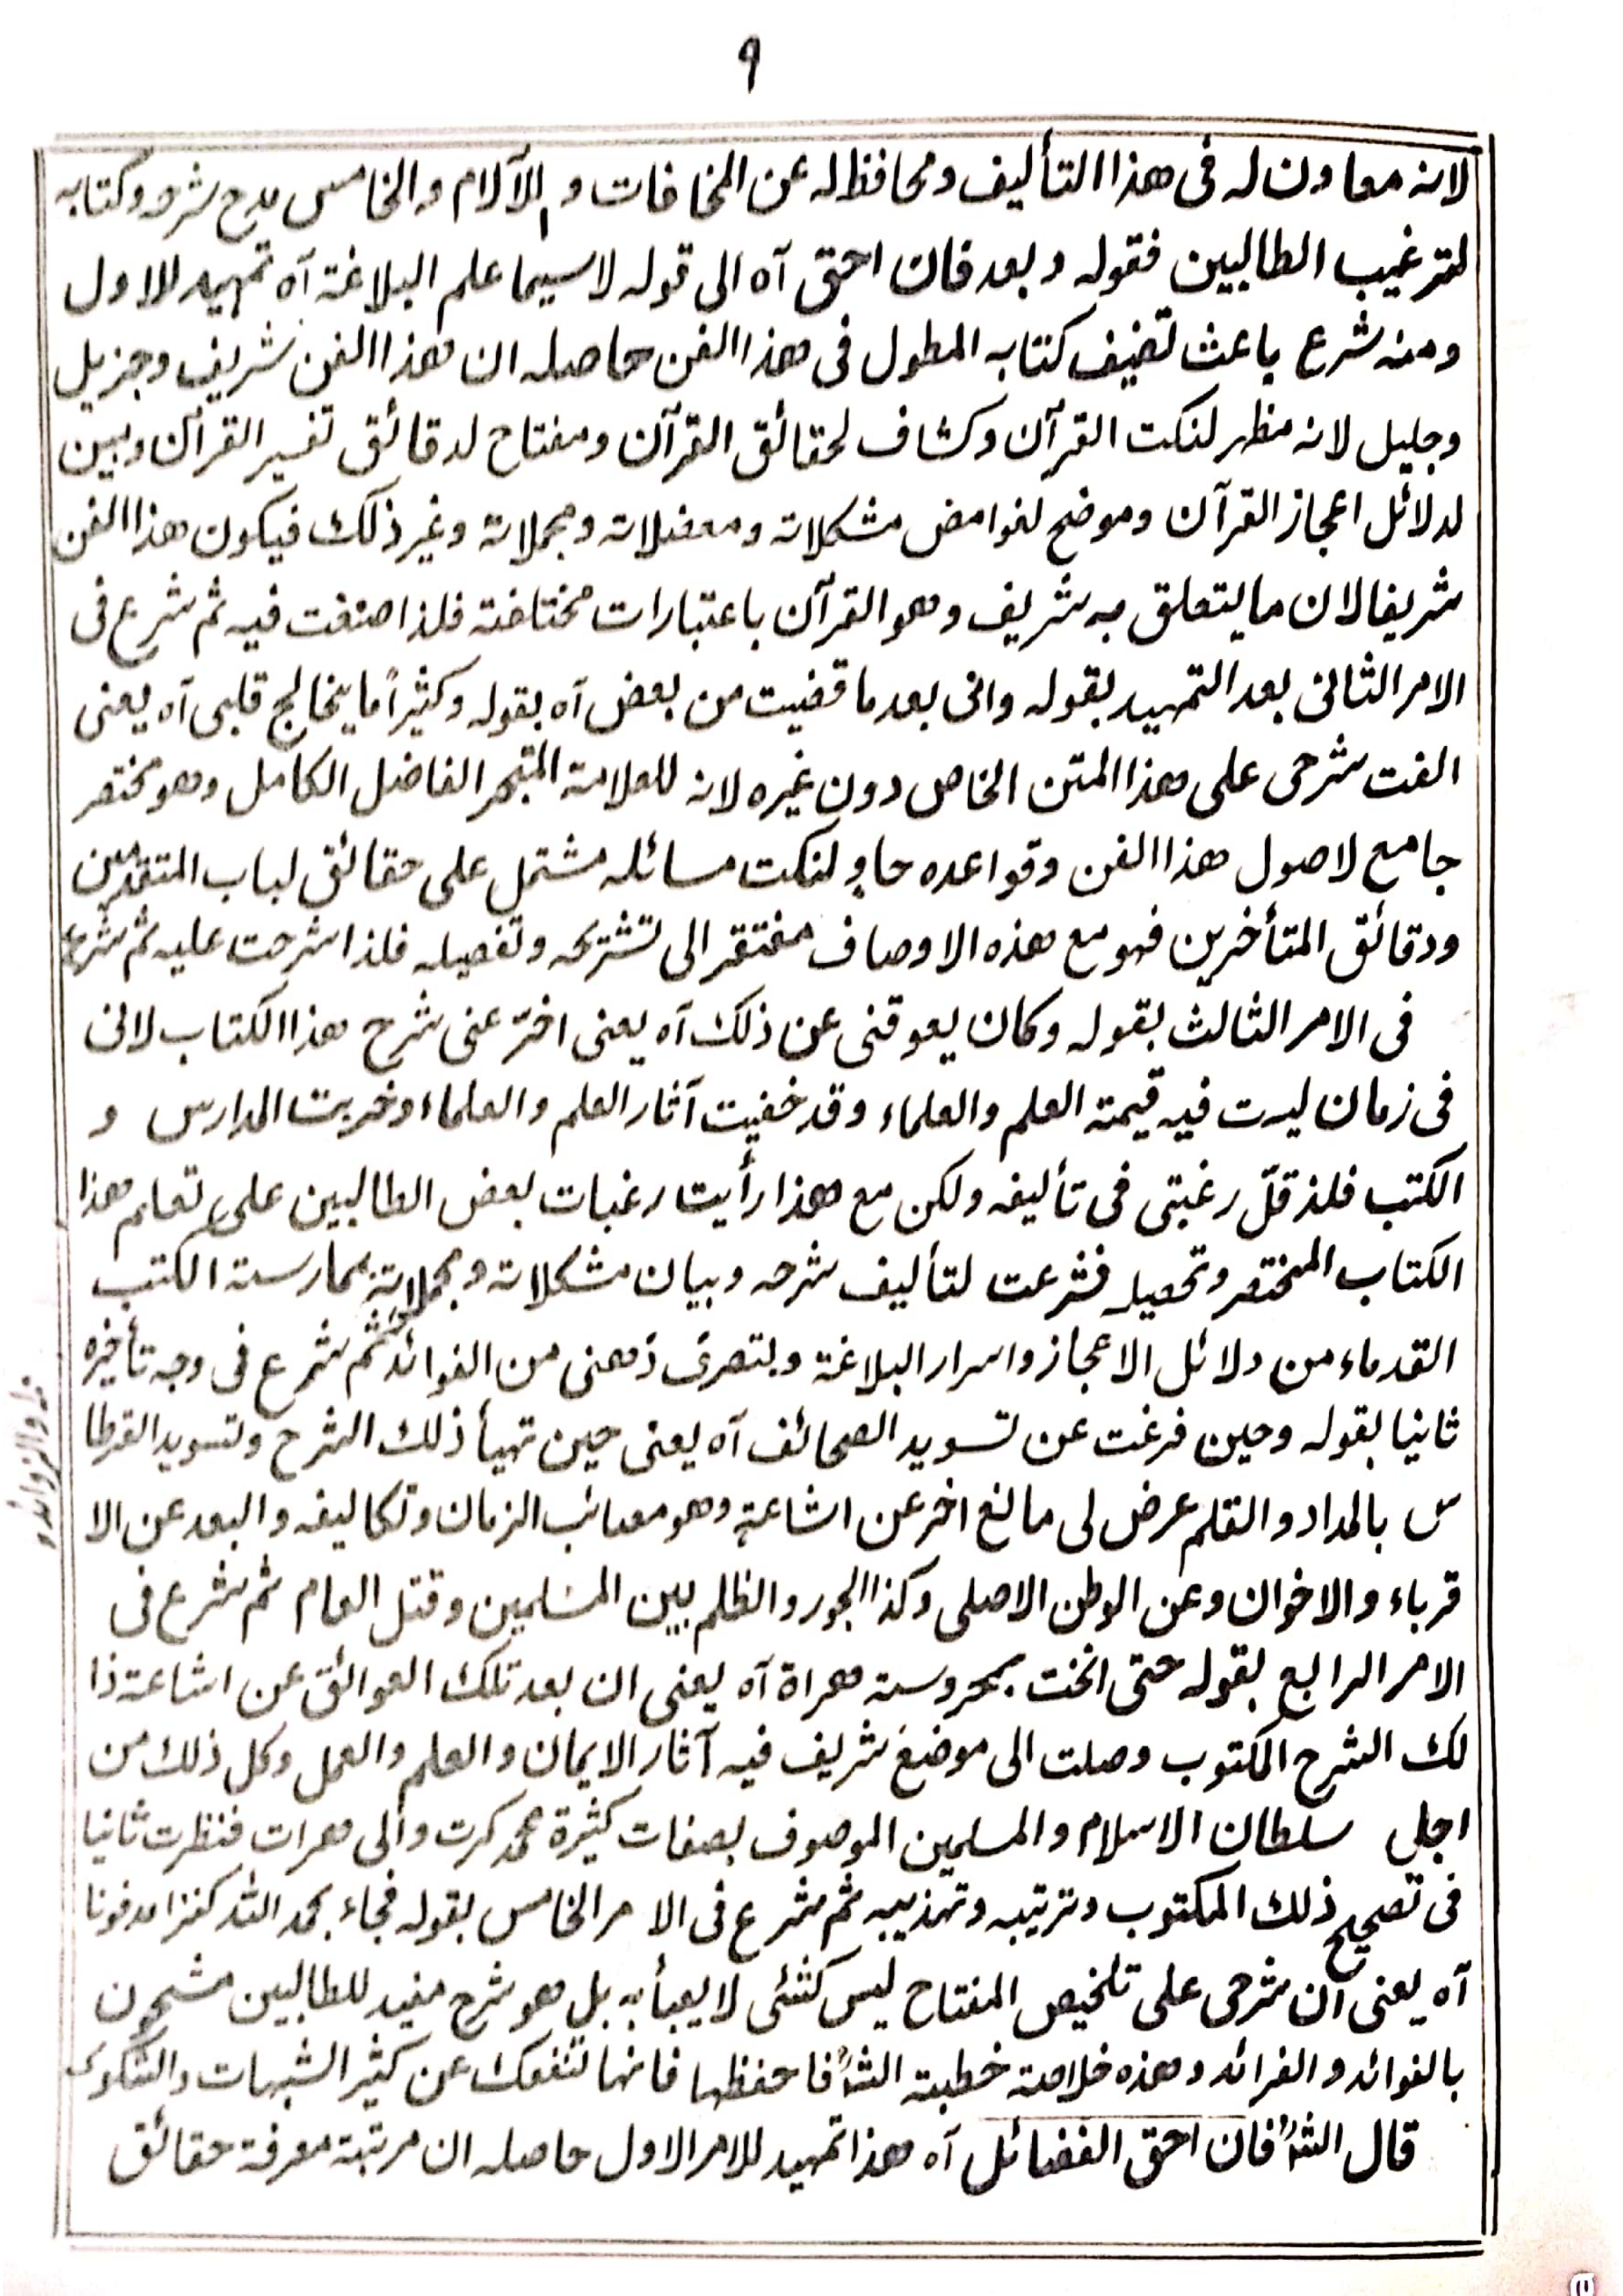 ٩
لانه معاون له فى هذا التأليف ومحافظ له عن المخافات و الآلام والخامس مدح شرحه وكتابه
لترغيب الطالبين فقوله وبعد فان احق آه الى قوله لاسيما علم البلاغة آه تمهيد للاول
ومنه شرع باعث تصنيف كتابه المطول فى هذا الفن حاصله ان هذا الفن شريف وجزيل
وجليل لانه مظهر لنكت القرآن وكشاف لحقائق القرآن ومفتاح لدقائق تفسير القرآن ومبين
لدلائل اعجاز القرآن وموضح لغوامض مشكلاته ومعضلاته ومجملاته وغير ذلك فيكون هذا الفن
شريفا لان ما يتعلق به شريف وهو القرآن باعتبارات مختلفة فلذا صنفت فيه ثم شرع فى
الامر الثانى بعد التمهيد بقوله وانى بعد ما قضيت من بعض آه بقوله وكثيراً ما يخالج قلبى آه يعنى
الفت شرحى على هذا المتن الخاص دون غيره لانه للعلامة المتبحر الفاضل الكامل وهو مختصر
جامع لاصول هذا الفن وقواعده حاوٍ لنكت مسائله مشتمل على حقائق لباب المتقدمين
ودقائق المتأخرين فهو مع هذه الاوصاف مفتقر الى تشريحه وتفصيله فلذا شرحت عليه ثم شرع
فى الامر الثالث بقوله وكان يعوقنى عن ذلك آه يعنى اخر عنى شرح هذا الكتاب لانى
فى زمان ليست فيه قيمة العلم والعلماء وقد خفيت آثار العلم والعلماء وخربت المدارس و
الكتب فلذ قلّ رغبتى فى تأليفه ولكن مع هذا رأيت رغبات بعض الطالبين على تعلم هذا
الكتاب المختصر وتحصيله فشرعت لتأليف شرحه وبيان مشكلاته ومجملاته بممارسة الكتب
القدماء من دلائل الاعجاز واسرار البلاغة وبتصرى ذهنى من الفوائد ثم شرع فى وجه تأخيره
ثانيا بقوله وحين فرغت عن تسويد الصحائف آه يعنى حين تهيأ ذلك الشرح وتسويد القرطا
س بالمداد والقلم عرض لى مانع اخر عن اشاعته وهو مصائب الزمان وتكاليفه والبعد عن الا
قرباء والاخوان وعن الوطن الاصلى وكذا الجور والظلم بين المسلمين وقتل العام ثم شرع فى
الامر الرابع بقوله حتى انخت بمحروسة هراة آه يعنى ان بعد تلك العوائق عن اشاعة ذا
لك الشرح المكتوب وصلت الى موضع شريف فيه آثار الايمان والعلم والعمل وكل ذلك من
اجل سلطان الاسلام والمسلمين الموصوف بصفات كثيرة محمد كرت والى هرات فنظرت ثانيا
فى تصحيح ذلك المكتوب وترتيبه وتهذيبه ثم شرع فى الامر الخامس بقوله فجاء بحمد الله كنزا مدفونا
آه يعنى ان شرحى على تلخيص المفتاح ليس كشئى لا يعبأ به بل هو شرح مفيد للطالبين مشحون
بالفوائد و الفرائد وهذه خلاصة خطبة الشارح فاحفظها فانها تنفعك عن كثير الشبهات والشكوك
قال الشارح فان احق الفضائل آه هذا تمهيد للامر الاول حاصله ان مرتبة معرفة حقائق